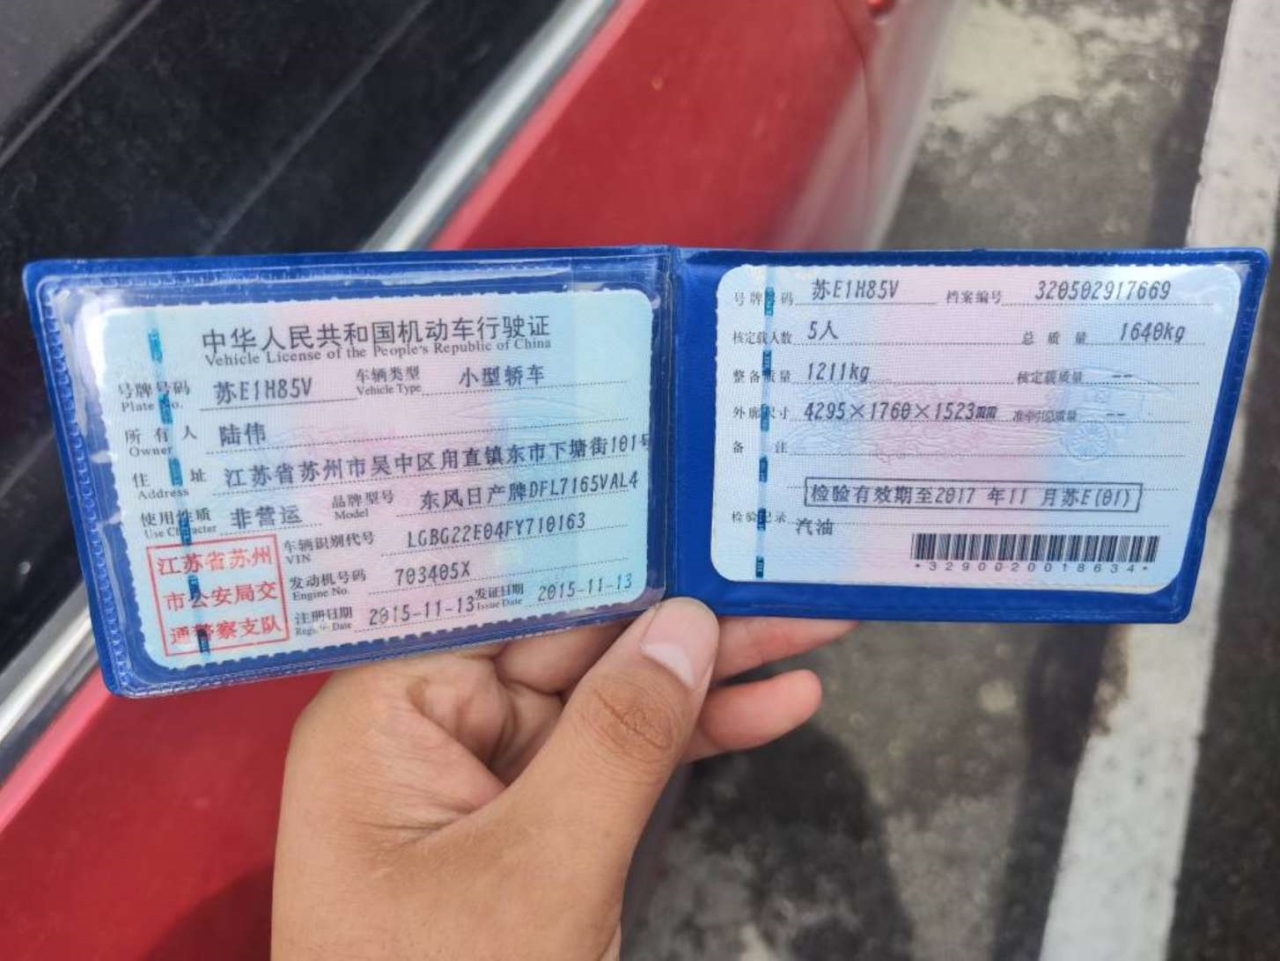 中华人民共和国机动车行驶证
Vehicle License of the People's Republic of China
号牌号码 苏E1H85V 车辆类型 小型轿车
Plate No. Vehicle Type
所有人 陆伟
Owner
住址 江苏省苏州市吴中区甪直镇东市下塘街101号
Address
使用性质 非营运 品牌型号 东风日产牌DFL7165VAL4
Use Character Model
车辆识别代号 LGBG22E04FY710163
VIN
发动机号码 703405X
Engine No.
注册日期 2015-11-13 发证日期 2015-11-13
Date Issue Date
江苏省苏州
市公安局交
通警察支队
号牌号码 苏E1H85V 档案编号 320502917669
核定载人数 5人 总质量 1640kg
整备质量 1211kg 核定载质量 --
外廓尺寸 4295×1760×1523mm 准牵引总质量 --
备注
检验有效期至2017年11月苏E(01)
检验记录 汽油
*3290020018634*